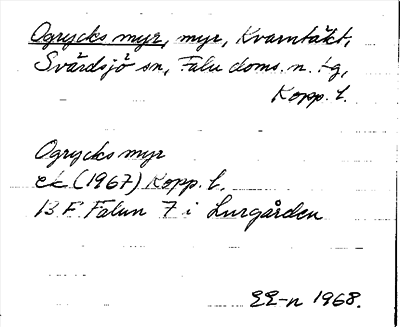 Ogrycks myr, myr, Kvarntäkt,
Svärdsjö sn, Falu doms. n. tg,
Kopp. l.
Ogrycks myr
ek (1967) Kopp. l.
13 F Falun 7 i Lurgården
EE-n 1968.